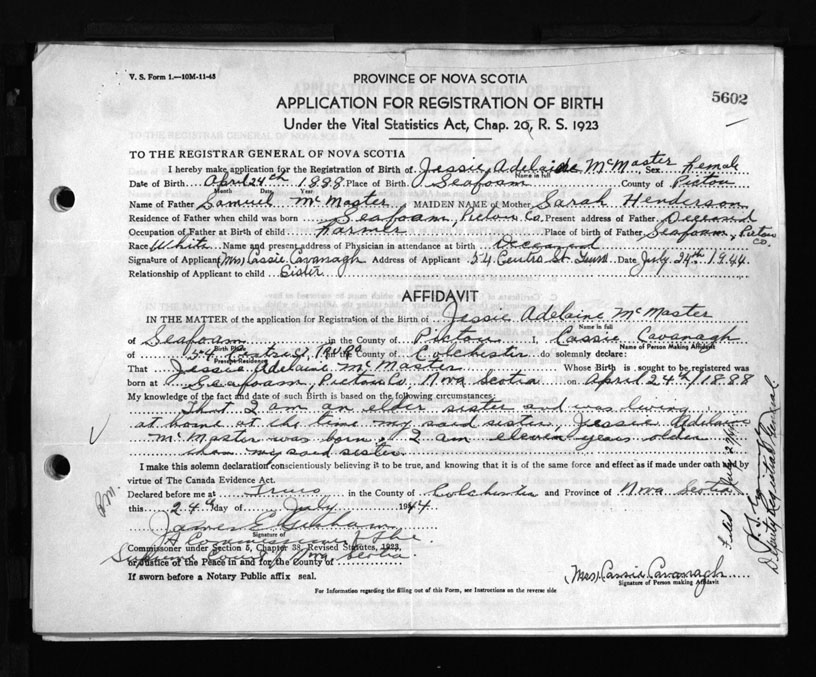 V. S. Form 1.—10M-11-43
PROVINCE OF NOVA SCOTIA
5602
APPLICATION FOR REGISTRATION OF BIRTH
Under the Vital Statistics Act, Chap. 20, R. S. 1923
TO THE REGISTRAR GENERAL OF NOVA SCOTIA
I hereby make application for the Registration of Birth of Jessie Adelaide McMaster Sex Female
Name in full
Date of Birth April 24th 1888 Place of Birth Seafoam County of Pictou
Month Date Year
Name of Father Samuel McMaster MAIDEN NAME of Mother Sarah Henderson
Residence of Father when child was born Seafoam, Pictou Co. Present address of Father Deceased
Occupation of Father at Birth of child Farmer Place of birth of Father Seafoam, Pictou Co.
Race White Name and present address of Physician in attendance at birth Deceased
Signature of Applicant (Mrs) Cassie Cavanagh Address of Applicant 54 Centre St Truro Date July 24th 1944
Relationship of Applicant to child Sister
AFFIDAVIT
IN THE MATTER of the application for Registration of the Birth of Jessie Adelaine McMaster
Name in full
of Seafoam in the County of Pictou I, Cassie Cavanagh
Birth Place Name of Person Making Affidavit
of 54 Centre St Truro in the County of Colchester do solemnly declare:
Present Residence
That Jessie Adelaine McMaster Whose Birth is sought to be registered was
born at Seafoam, Pictou Co., Nova Scotia on April 24th/1888
My knowledge of the fact and date of such Birth is based on the following circumstances:
That I am an elder sister and was living
at home at the time my said sister, Jessie Adelaine
McMaster was born, I am eleven years older
than my said sister.
I make this solemn declaration conscientiously believing it to be true, and knowing that it is of the same force and effect as if made under oath and by
virtue of The Canada Evidence Act.
Declared before me at Truro in the County of Colchester and Province of Nova Scotia
this 24th day of July 1944
James E.
Signature of
A Commissioner of the
Commissioner under Section 5, Chapter 38, Revised Statutes, 1923,
Supreme Court of Nova Scotia
or Justice of the Peace in and for the County of
If sworn before a Notary Public affix seal.
(Mrs) Cassie Cavanagh
Signature of Person making Affidavit
For Information regarding the filling out of this Form, see Instructions on the reverse side
Filed
Deputy Registrar General